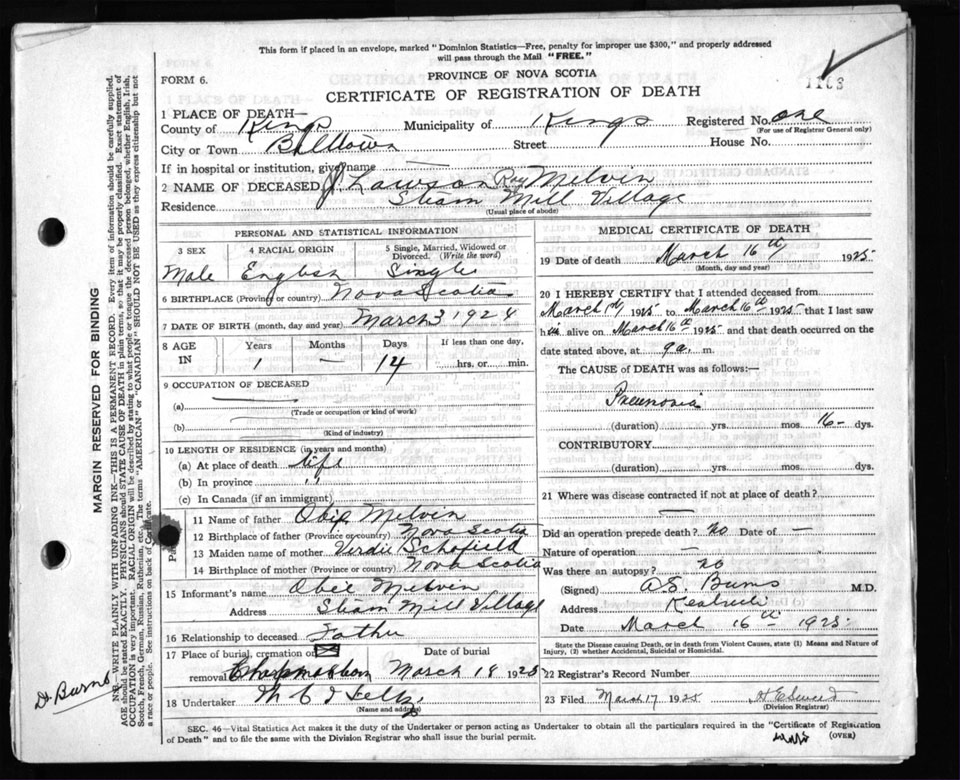 This form if placed in an envelope, marked "Dominion Statistics—Free, penalty for improper use $300," and properly addressed
will pass through the Mail "FREE."
FORM 6.
PROVINCE OF NOVA SCOTIA
1163
CERTIFICATE OF REGISTRATION OF DEATH
1 PLACE OF DEATH—
County of Kings Municipality of Kings Registered No. one
(For use of Registrar General only)
City or Town Street House No.
If in hospital or institution, give name
2 NAME OF DECEASED J. Lawson Ray Melvin
Residence Steam Mill Village
(Usual place of abode)
PERSONAL AND STATISTICAL INFORMATION
3 SEX 4 RACIAL ORIGIN 5 Single, Married, Widowed or
Divorced. (Write the word)
Male English Single
6 BIRTHPLACE (Province or country) Nova Scotia
7 DATE OF BIRTH (month, day and year) March 3 1924
8 AGE Years Months Days If less than one day,
IN 1 — 14 hrs. or min.
9 OCCUPATION OF DECEASED
(a)
(Trade or occupation or kind of work)
(b)
(Kind of industry)
10 LENGTH OF RESIDENCE (in years and months)
(a) At place of death life
(b) In province "
(c) In Canada (if an immigrant)
11 Name of father Obie Melvin
12 Birthplace of father (Province or country) Nova Scotia
13 Maiden name of mother Verdie Schofield
14 Birthplace of mother (Province or country) Nova Scotia
15 Informant's name Obie Melvin
Address Steam Mill Village
16 Relationship to deceased Father
17 Place of burial, cremation or Date of burial
removal March 18 1925
18 Undertaker
(Name and address)
MEDICAL CERTIFICATE OF DEATH
19 Date of death March 16th 1925
(Month, day and year)
20 I HEREBY CERTIFY that I attended deceased from
March 1st 1925 to March 16th 1925 that I last saw
him alive on March 16th 1925 and that death occurred on the
date stated above, at 9 a. m.
The CAUSE of DEATH was as follows:—
Pneumonia
(duration) yrs. mos. 16- dys.
CONTRIBUTORY
(duration) yrs. mos. dys.
21 Where was disease contracted if not at place of death?
—
Did an operation precede death? no Date of —
Nature of operation —
Was there an autopsy? no
(Signed) A.S. Burns M.D.
Address Kentville
Date March 16th 1925
State the Disease causing Death, or in death from Violent Causes, state (1) Means and Nature of
Injury, (2) whether Accidental, Suicidal or Homicidal.
22 Registrar's Record Number
23 Filed March 17 1925
(Division Registrar)
SEC. 46—Vital Statistics Act makes it the duty of the Undertaker or person acting as Undertaker to obtain all the particulars required in the "Certificate of Registration
of Death" and to file the same with the Division Registrar who shall issue the burial permit. (OVER)
MARGIN RESERVED FOR BINDING
N.B.—WRITE PLAINLY WITH UNFADING INK—THIS IS A PERMANENT RECORD. Every item of information should be carefully supplied.
AGE should be stated EXACTLY. PHYSICIANS should STATE CAUSE OF DEATH in plain terms, so that it may be properly classified. Exact statement of
OCCUPATION is very important. RACIAL ORIGIN will be described by stating to what people or tongue the deceased person belonged, whether English, Irish,
Scotch, French, German, Russian, Ruthenian, etc. The terms "AMERICAN" or "CANADIAN" SHOULD NOT BE USED as they express citizenship but not
a race or people. See instructions on back of Certificate.
Dr Burns